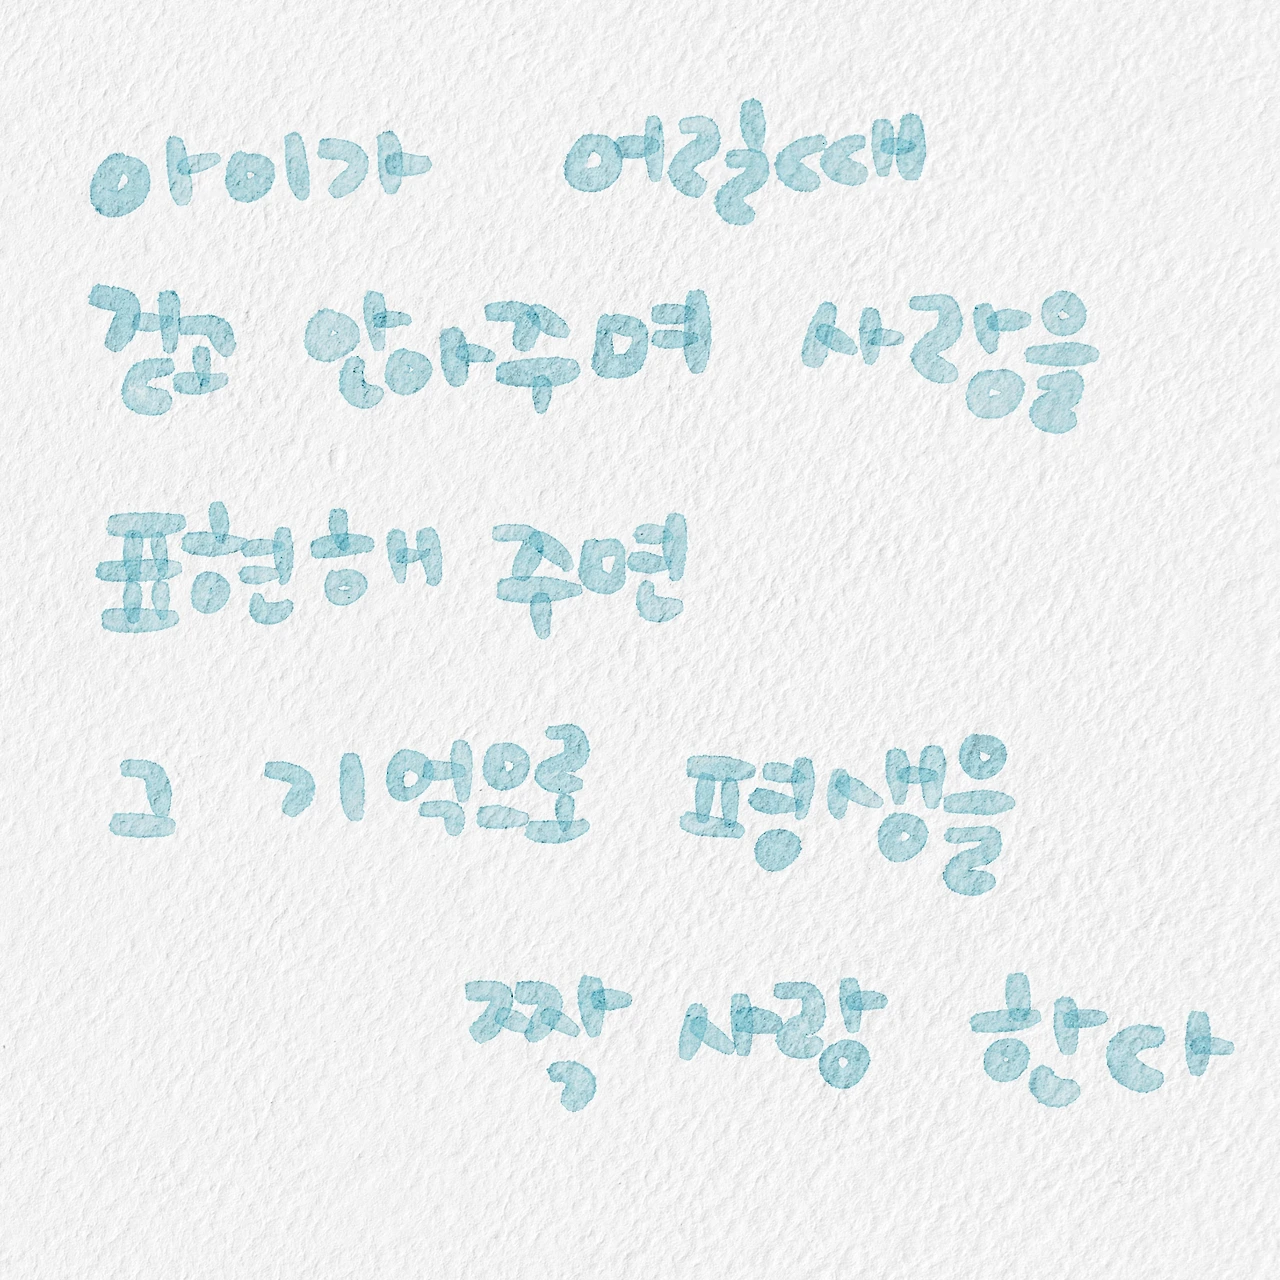 아이가 어릴때
걷고 안아주며 사랑을
표현해 주면
그 기억으로 평생을
짝 사랑 한다